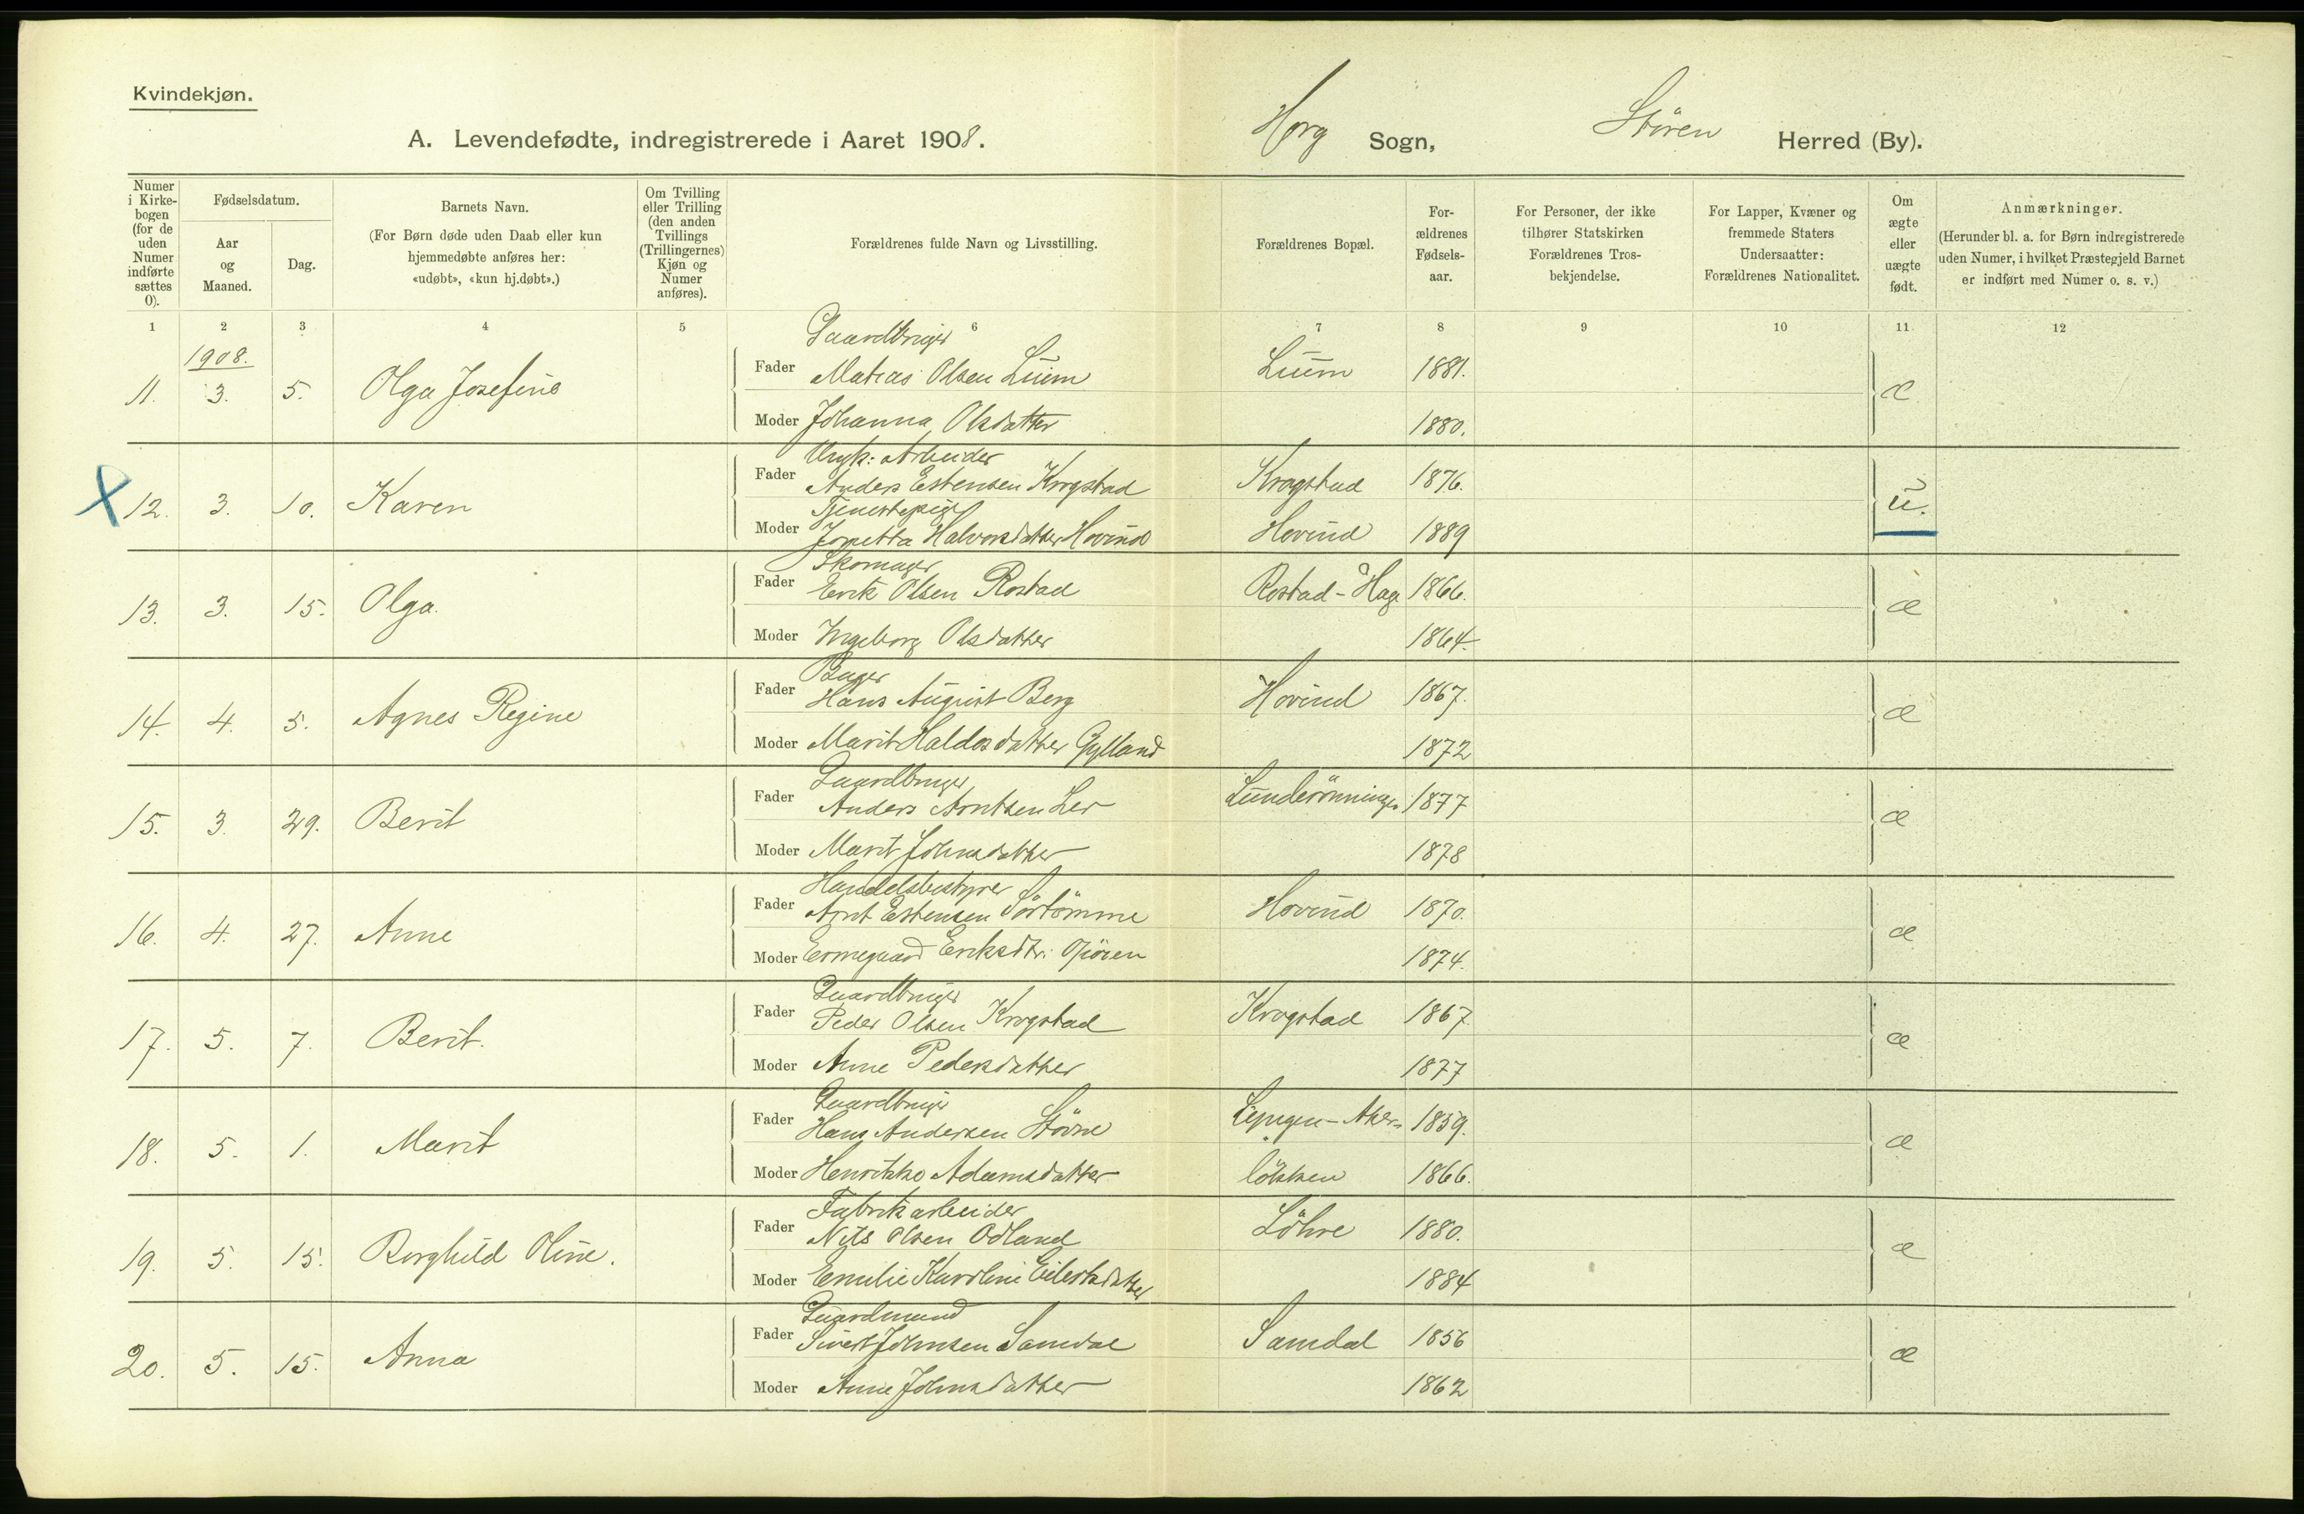 Kvindekjøn.
A. Levendefødte, indregistrerede i Aaret 1908.
Horg Sogn, Støren Herred (By).
Numer i Kirkebogen (for de uden Numer indførte sættes 0).
Fødselsdatum.
Aar og Maaned.
Dag.
Barnets Navn.
(For Børn døde uden Daab eller kun hjemmedøbte anføres her: «udøbt», «kun hj.døbt».)
Om Tvilling eller Trilling (den anden Tvillings (Trillingernes) Kjøn og Numer anføres).
Forældrenes fulde Navn og Livsstilling.
Forældrenes Bopæl.
Forældrenes Fødselsaar.
For Personer, der ikke tilhører Statskirken Forældrenes Trosbekjendelse.
For Lapper, Kvæner og fremmede Staters Undersaatter: Forældrenes Nationalitet.
Om ægte eller uægte født.
Anmærkninger.
(Herunder bl. a. for Børn indregistrerede uden Numer, i hvilket Præstegjeld Barnet er indført med Numer o. s. v.)
1 2 3 4 5 6 7 8 9 10 11 12
1908.
Gaardbruger
11. 3. 5. Olga Josefine Fader Matias Olsen Luim Luum 1881. æ
Moder Johanna Olsdatter 1880.
Arbeider
X 12. 3. 10. Karen Fader Anders Estensen Krogstad Krogstad 1876. u.
Tjenestepige
Moder Jonetta Halvorsdatter Hovind Hovind 1889
Skomager
13. 3. 15. Olga. Fader Erik Olsen Rostad Rostad-Hag. 1866. æ
Moder Ingeborg Olsdatter 1864.
Bager
14. 4. 5. Agnes Regine Fader Hans August Berg Hovind 1867. æ
Moder Marit Haldosdatter Gylland 1872
Gaardbruger
15. 3. 29. Berit Fader Anders Arntsen Ler 1877 æ
Moder Marit Johnsdatter 1878
Handelsbestyrer
16. 4. 27. Anne Fader Arnt Estensen Sørtømme Hovind 1870. æ
Moder Ermegaard Eriksdtr. 1874.
Gaardbruger
17. 5. 7. Berit. Fader Peder Olsen Krogstad Krogstad 1867 æ
Moder Anne Pedersdatter 1877
Gaardbruger
18. 5. 1. Marit Fader Hans Andersen Støvne 1859. æ
Moder Henrikke Adamsdatter løkken 1866.
Fabrikarbeider
19. 5. 15. Borghild Oline. Fader Nils Olsen Ødland Løhre 1880. æ
Moder Emilie Karoline Eilertsdatter 1884
Gaardmand
20. 5. 15. Anna Fader Sivert Johnsen Samdal Samdal 1856 æ
Moder Anne Johnsdatter 1862